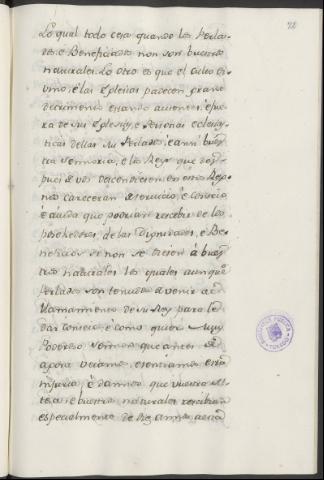 Lo qual todo cesa quando los Perla-
dos e Beneficiados non son buestros
naturales. Lo otro es que el culto di-
vino, é las Eglesias padecen grande
detrimento estando ausentes, é fue-
ra de sus Eglesias, e Personas eclesias-
ticas dellas sus Perlados, é ansi bues-
tra Señoria, e los Reyes que des-
pues de vos descendieren en estos Rey-
nos careceran de servicio, é consejo
é aiuda que podrian recebir de los
poseedores, de las Dignidades, e Be-
neficios si non se diesen á bues-
tros naturales los quales aunque
Perlados son tenudos á venir a
llamamiento de su Rey para le
dar consejo, é como quier Muy
Poderoso Señor que antes de
agora veiamos, e sentiamos esta
injuria, é daños que vuestra Al-
teza e buestros naturales recibian
especialmente de diez annos acá